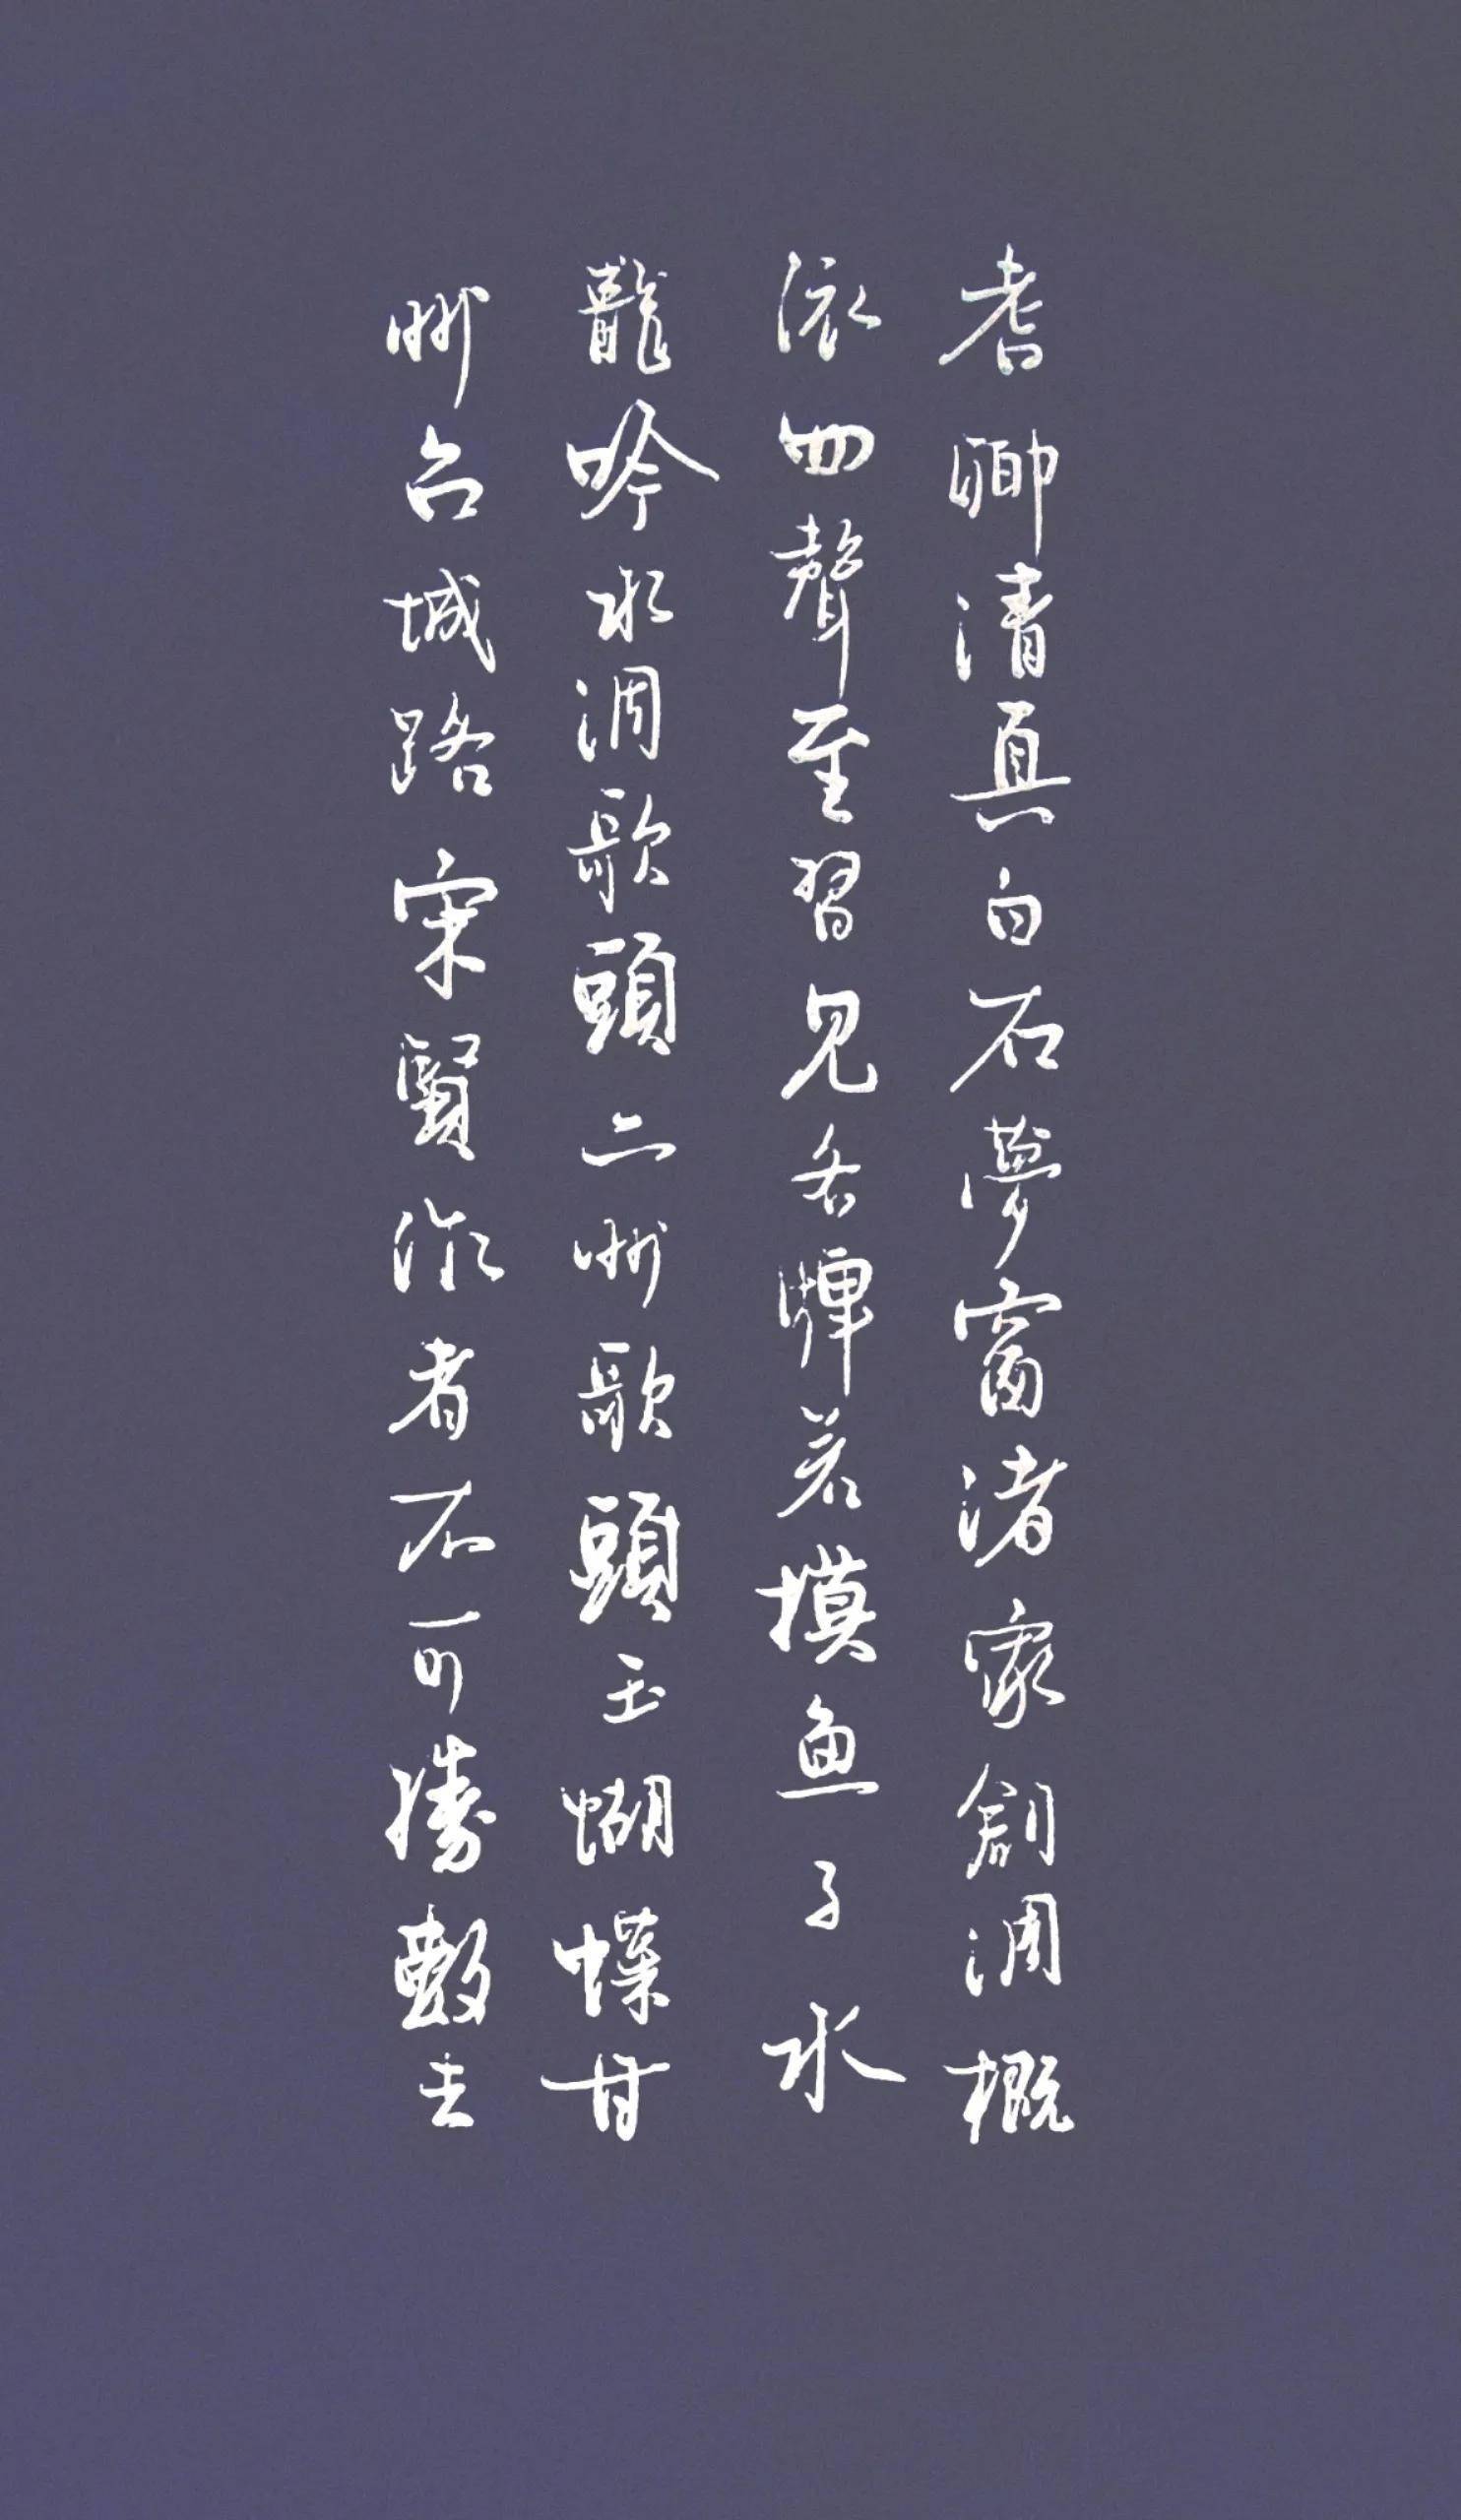 耆卿清真白石夢窗諸家創調概
依四聲至習見各牌若摸鱼子水
龍吟水調歌頭六州歌頭玉蝴蝶甘
州台城路宋賢作者不可勝數去